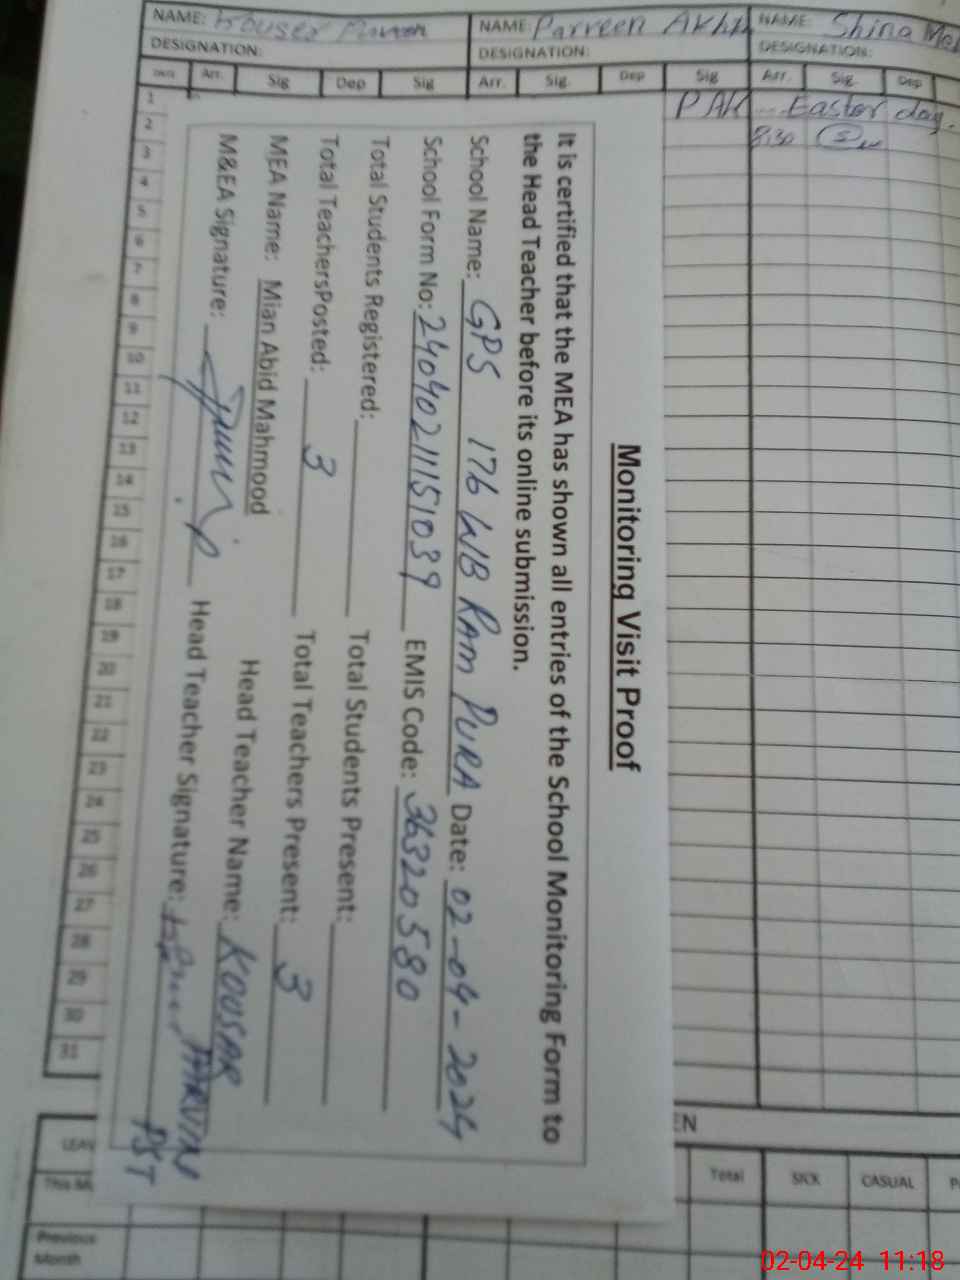 NAME: Kouser Parveen NAME: Parveen Akhtr NAME: Shina
DESIGNATION: DESIGNATION: DESIGNATION:
Date Arr. Sig Dep Sig Arr. Sig Dep Sig Arr. Sig Dep
1 P AK Easter day.
2 8:30
3
4
5
6
7
8
9
10
11
12
13
14
15
16
17
18
19
20
21
22
23
24
25
26
27
28
29
30
31
Monitoring Visit Proof
It is certified that the MEA has shown all entries of the School Monitoring Form to
the Head Teacher before its online submission.
School Name: GPS 176 WB RAM PURA Date: 02-04-2024
School Form No: 24040211151039 EMIS Code: 36320580
Total Students Registered: Total Students Present:
Total TeachersPosted: 3 Total Teachers Present: 3
MEA Name: Mian Abid Mahmood Head Teacher Name: KOUSAR PARVIN
M&EA Signature: Head Teacher Signature:
PST
Total SICK CASUAL
This
Previous
Month
02-04-24 11:18